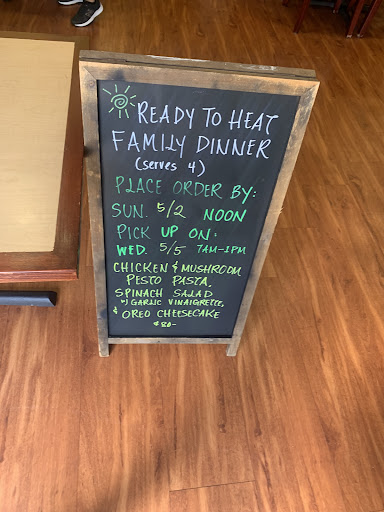 READY TO HEAT
FAMILY DINNER
(serves 4)
PLACE ORDER BY:
SUN. 5/2 NOON
PICK UP ON:
WED. 5/5 7AM-1PM
CHICKEN & MUSHROOM
PESTO PASTA,
SPINACH SALAD
W/ GARLIC VINAIGRETTE,
& OREO CHEESECAKE
$80-